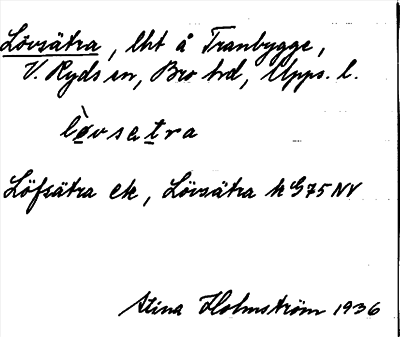 Lövsätra, lht å Tranbygge,
V. Ryds sn, Bro hd, Upps. l.
lòvsetra
Löfsätra ek, Lövsätra k G75 NV
Stina Holmström 1936